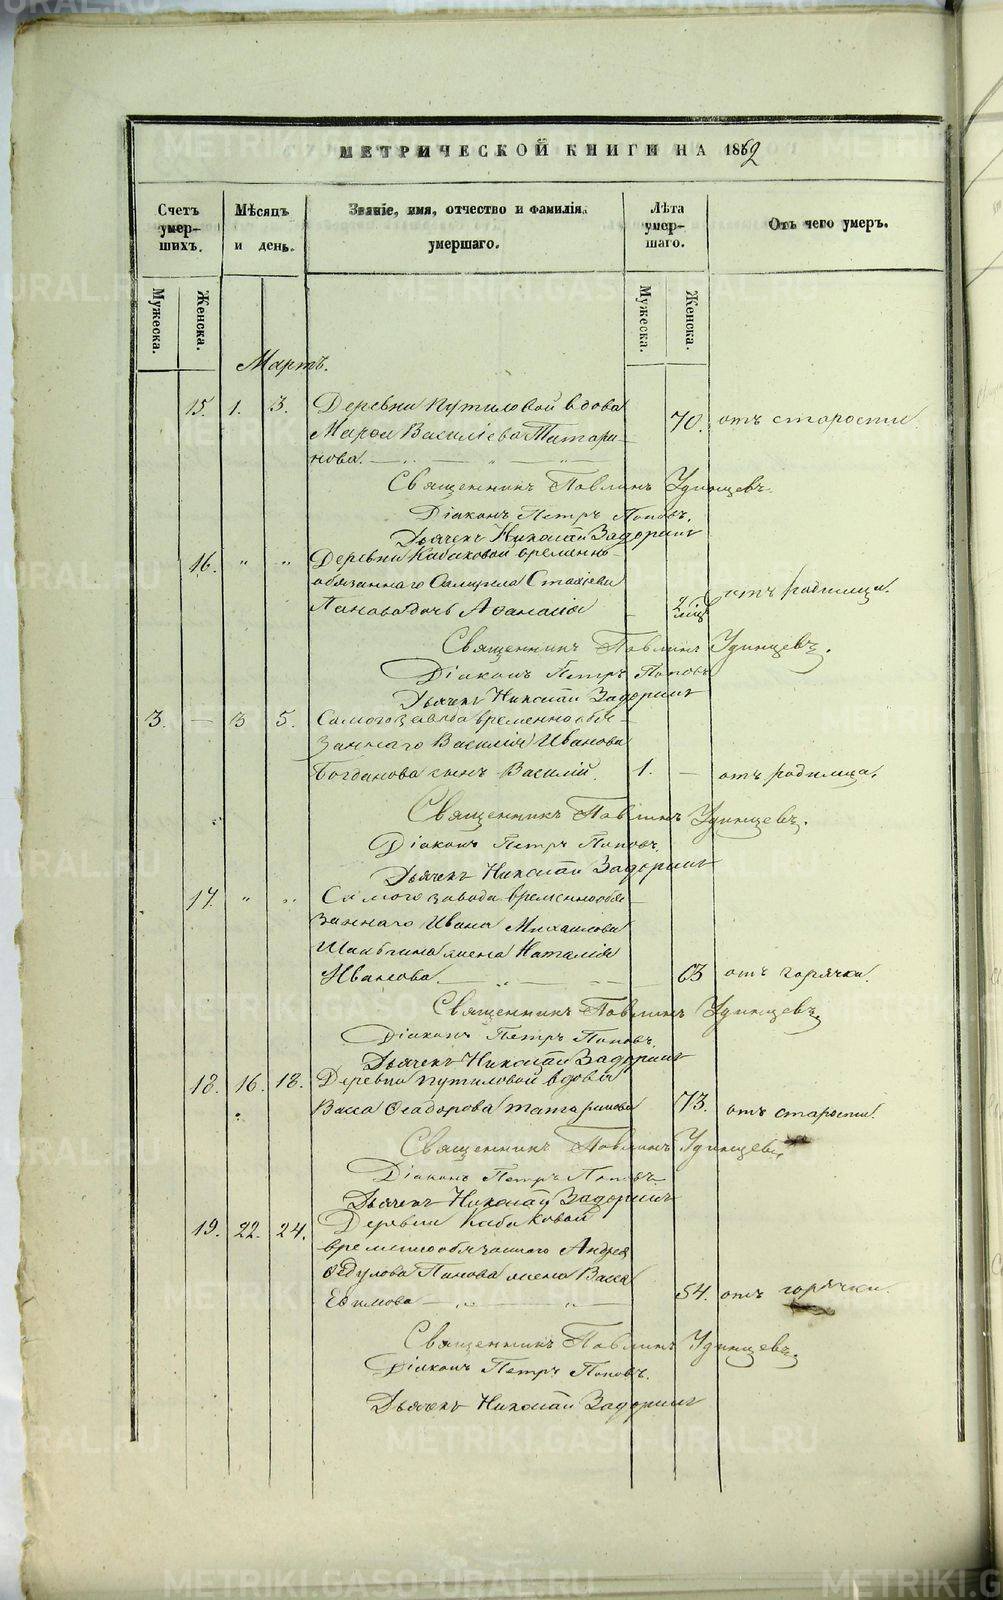 МЕТРИЧЕСКОЙ КНИГИ НА 1862
Счетъ умер-
шихъ.
Мѣсяцъ
и день.
Званіе, имя, отчество и фамилія
умершаго.
Лѣта
умер-
шаго.
Отъ чего умеръ.
Мужеска.
Женска.
Мужеска.
Женска.
Мартъ.
15. 1. 3. Деревни Путиловой вдова
Марѳа Василіева Татари-
нова. 70. отъ старости.
Священникъ Павлинъ Удинцевъ.
Діаконъ Петръ Поповъ.
Дьячекъ Николай Задоринъ
16. " " Деревни Кабаковой временно-
обязаннаго Стахіева
Панова дочь Аѳанасія 2 мѣс. отъ родимца.
Священникъ Павлинъ Удинцевъ.
Діаконъ Петръ Поповъ
Дьячекъ Николай Задоринъ
3. — 3 5. Самого завода временнообя-
заннаго Василія Иванова
Богданова сынъ Василій. 1. — отъ родимца.
Священникъ Павлинъ Удинцевъ.
Діаконъ Петръ Поповъ.
Дьячекъ Николай Задоринъ
17. " " Самого завода временнообя-
заннаго Ивана Михаилова
жена Наталія
Иванова 63 отъ горячки.
Священникъ Павлинъ Удинцевъ.
Діаконъ Петръ Поповъ.
Дьячекъ Николай Задоринъ
18. 16. 18. Деревни Путиловой вдова
Васса Ѳеодорова Татаринова 73. отъ старости.
Священникъ Павлинъ Удинцевъ.
Діаконъ Петръ Поповъ
Дьячекъ Николай Задоринъ
19. 22. 24. Деревни Кабаковой
временнообязаннаго Андрея
Ѳедулова Панова жена Васса
Ефимова 54. отъ горячки.
Священникъ Павлинъ Удинцевъ.
Діаконъ Петръ Поповъ.
Дьячекъ Николай Задоринъ
METRIKI.GASO-URAL.RU